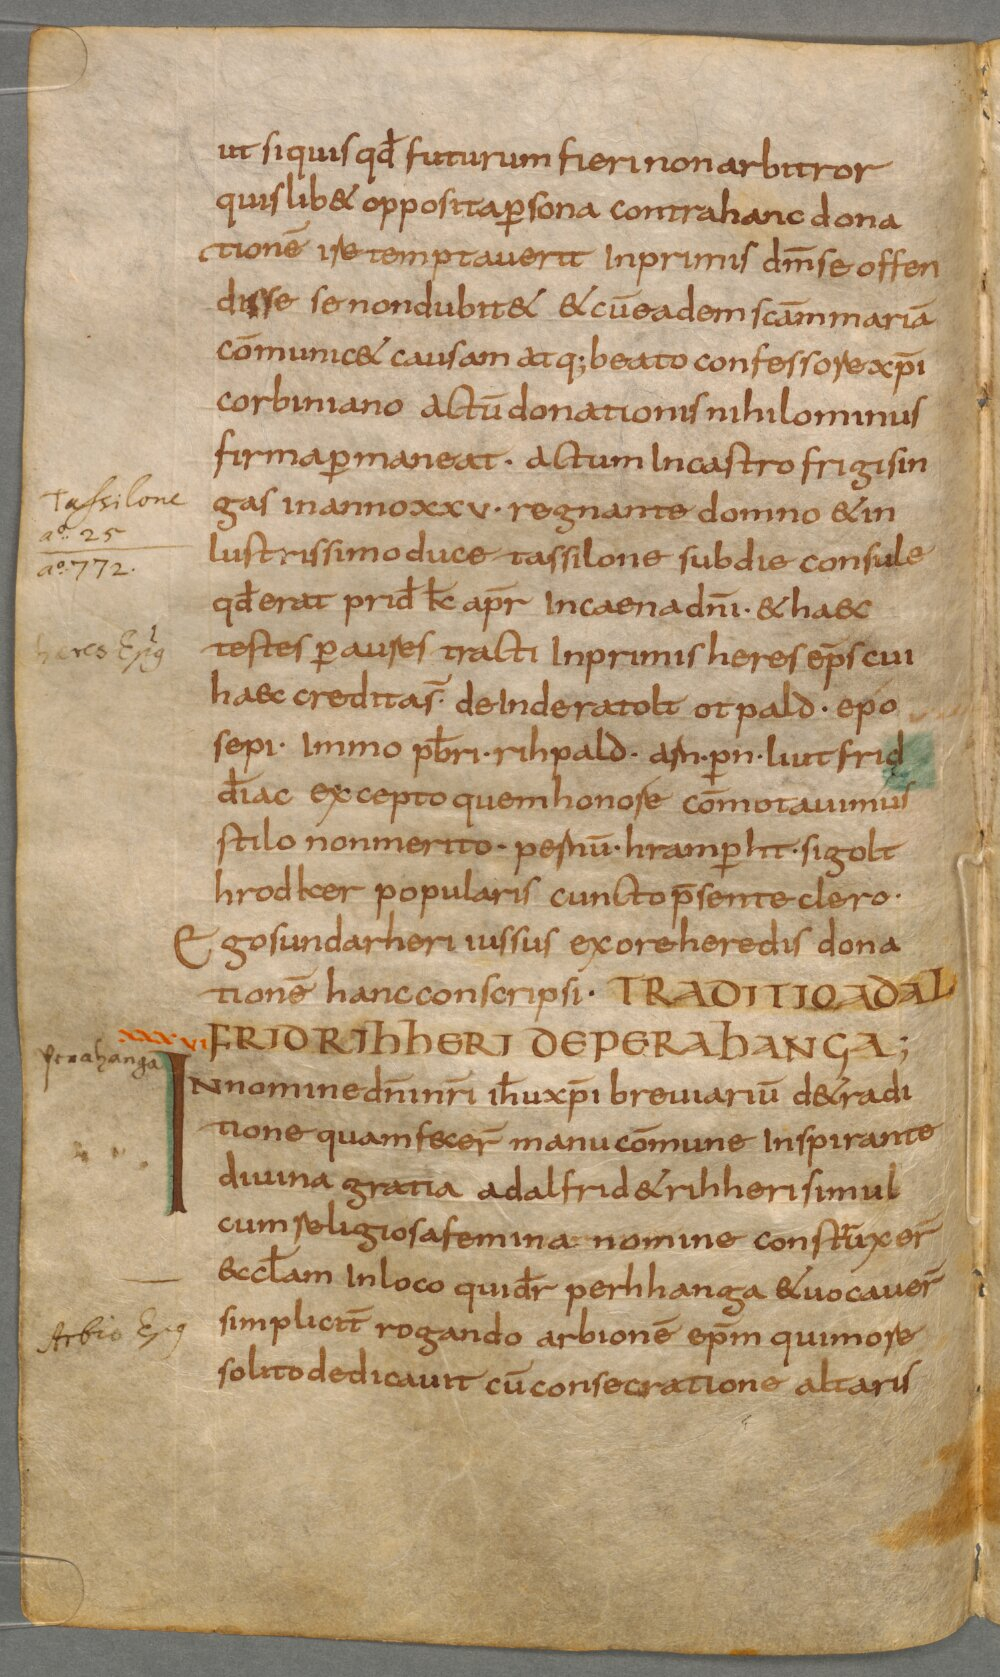 ut siquis qđ futurum fieri non arbitror
quislib& opposita ꝑsona contra hanc dona
tionē ire temptauerit Inprimis dm̄ se offen
disse se non dubit& & cū eadem scām mariā
cōmunic& causam atq; beato confessore xp̄i
corbiniano actū donationis nihilominus
firma ꝑmaneat · actum In castro frigisin
gas in anno xxv · regnante domno & in
Tassilone
aº. 25
aº. 772.
lustrissimo duce tassilone sub die consule
qđ erat priđ kł apr̄ In caena dn̄i · & haec
testes ꝑ aures tracti Inprimis heres ep̄s cui
heres Ep̄g
haec credita s̄ · deInde ratolt otpald · epo
sepi · Immo pb̄ri · rihpald · arn · ꝑn · liutfrid
điac excepto quem honore cōmotauimus
stilo non merito · pernū · hramꝑht · sigolt
hrodker popularis cuncto p̄sente clero ·
Ego sundarheri iussus ex ore heredis dona
tionē hanc conscripsi · TRADITIO ADAL
xxxvi FRID RIhhERI DE PERAhANGA;
Perahanga
IN nomine dn̄i nr̄i ih̄u xp̄i breuiariū de tradi
tione quam fecer̄ manu cōmune Inspirante
diuina gratia adalfrid & rihheri simul
cum religiosa femina nomine construxer̄
& eccl̄am In loco quidr̄ perhhanga & uocauer̄
simplicit̄ rogando arbionē ep̄m qui more
Arbio Ep̄g
solito dedicauit cū consecratione altaris